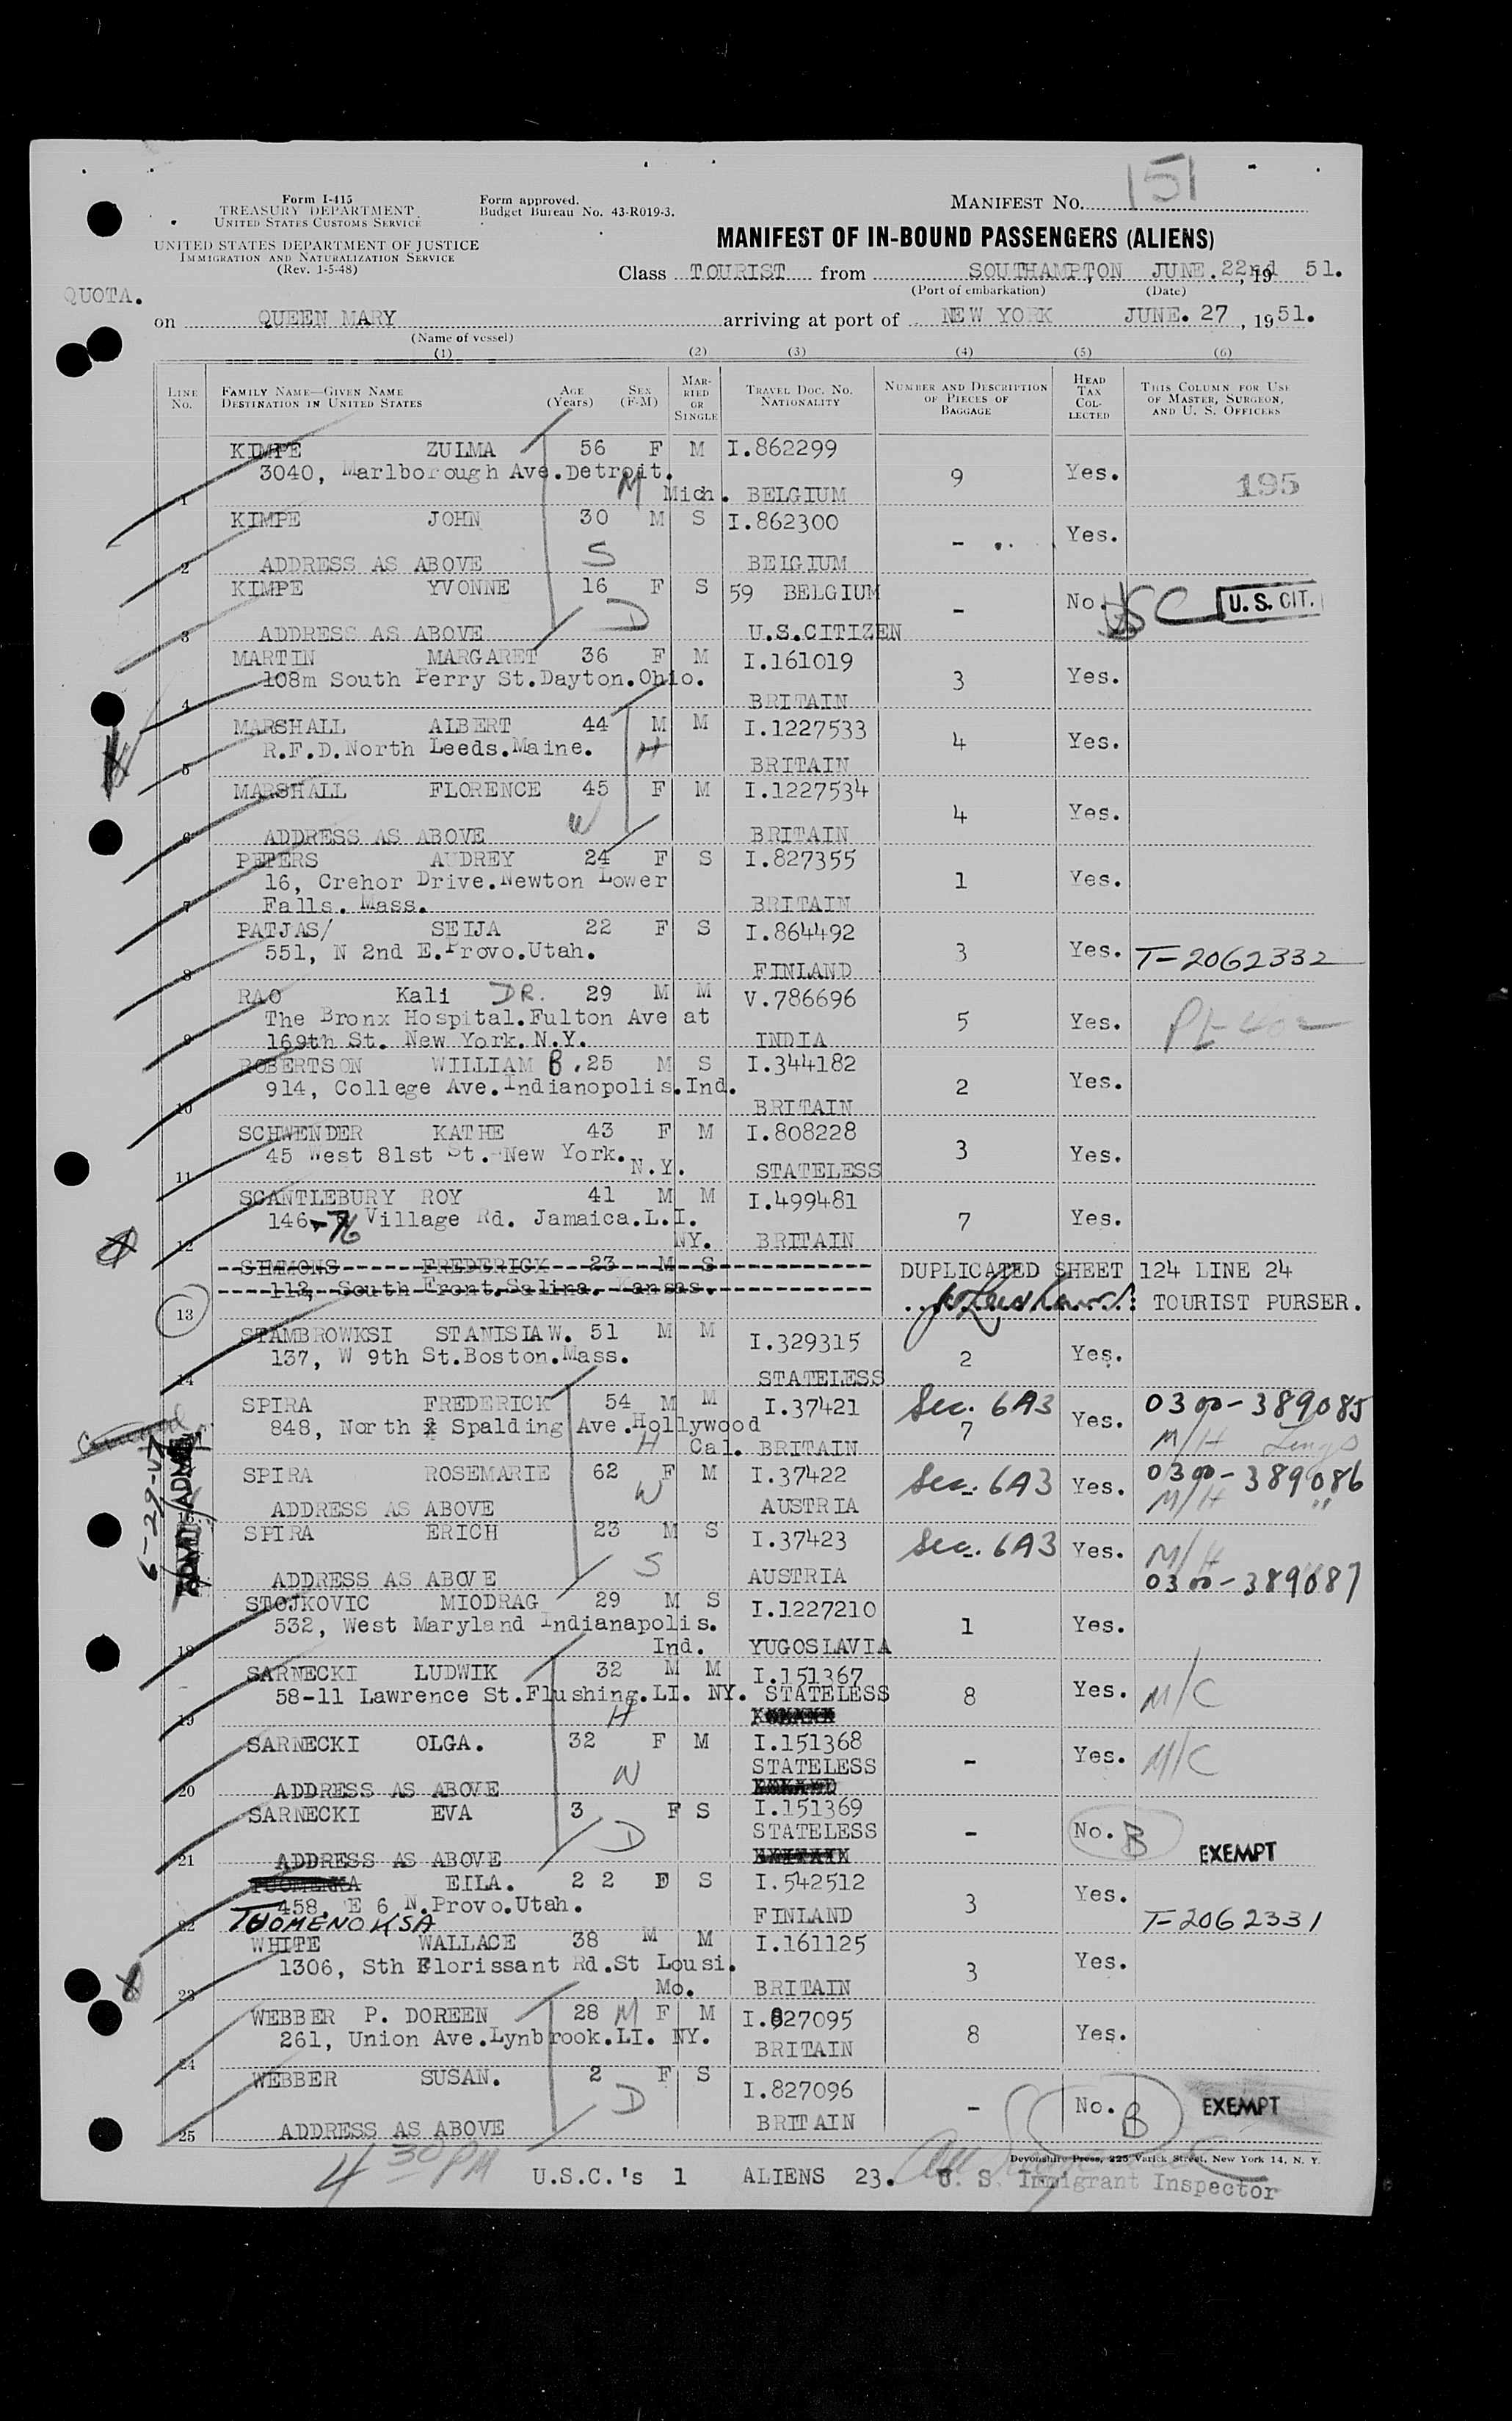 151
Form I-415
TREASURY DEPARTMENT
UNITED STATES CUSTOMS SERVICE
Form approved.
Budget Bureau No. 43-R019-3.
MANIFEST NO.
UNITED STATES DEPARTMENT OF JUSTICE
IMMIGRATION AND NATURALIZATION SERVICE
(Rev. 1-5-48)
MANIFEST OF IN-BOUND PASSENGERS (ALIENS)
Class TOURIST from SOUTHAMPTON, JUNE. 22nd, 19 51.
(Port of embarkation) (Date)
QUOTA.
on QUEEN MARY arriving at port of NEW YORK JUNE. 27, 1951.
(Name of vessel)
(1) (2) (3) (4) (5) (6)
LINE No. FAMILY NAME—GIVEN NAME DESTINATION IN UNITED STATES AGE (Years) SEX (F-M) MARRIED OR SINGLE TRAVEL DOC. NO. NATIONALITY NUMBER AND DESCRIPTION OF PIECES OF BAGGAGE HEAD TAX COLLECTED THIS COLUMN FOR USE OF MASTER, SURGEON, AND U. S. OFFICERS
KIMPE ZULMA 56 F M I.862299
3040, Marlborough Ave.Detroit. 9 Yes. 195
1 M Mich. BELGIUM
KIMPE JOHN 30 M S I.862300
- Yes.
2 ADDRESS AS ABOVE S BELGIUM
KIMPE YVONNE 16 F S 59 BELGIUM
D - No. USC U.S. CIT.
3 ADDRESS AS ABOVE U.S.CITIZEN
MARTIN MARGARET 36 F M I.161019
108m South Perry St.Dayton.Ohio. 3 Yes.
4 BRITAIN
MARSHALL ALBERT 44 M M I.1227533
R.F.D.North Leeds.Maine. H 4 Yes.
5 BRITAIN
MARSHALL FLORENCE 45 F M I.1227534
W 4 Yes.
6 ADDRESS AS ABOVE BRITAIN
PETERS AUDREY 24 F S I.827355
16, Crehor Drive.Newton Lower 1 Yes.
7 Falls. Mass. BRITAIN
PATJAS/ SEIJA 22 F S I.864492
551, N 2nd E.Provo.Utah. 3 Yes. T-2062332
8 FINLAND
RAO Kali DR. 29 M M V.786696
The Bronx Hospital.Fulton Ave at 5 Yes.
9 169th St. New York. N.Y. INDIA
ROBERTSON WILLIAM B. 25 M S I.344182
914, College Ave.Indianopolis.Ind. 2 Yes.
10 BRITAIN
SCHWENDER KATHE 43 F M I.808228
45 West 81st St. New York. N.Y. 3 Yes.
11 STATELESS
SCANTLEBURY ROY 41 M M I.499481
146-76 Village Rd. Jamaica.L.I. 7 Yes.
12 NY. BRITAIN
SIMMONS FREDERICK 23 M S DUPLICATED SHEET 124 LINE 24
112, South Front.Salina. Kansas.
13 TOURIST PURSER.
STAMBROWKSI STANISIAW. 51 M M I.329315
137, W 9th St.Boston.Mass. 2 Yes.
14 STATELESS
SPIRA FREDERICK 54 M M I.37421 Sec. 6A3 0300-389085
848, North Spalding Ave.Hollywood 7 Yes.
H Cal. BRITAIN M/H
SPIRA ROSEMARIE 62 F M I.37422 Sec. 6A3 Yes. 0300-389086
W M/H "
16 ADDRESS AS ABOVE AUSTRIA
6-29-
SPIRA ERICH 23 M S I.37423 Sec. 6A3 Yes. M/H
S
ADDRESS AS ABOVE AUSTRIA 0300-389087
STOJKOVIC MIODRAG 29 M S I.1227210
532, West Maryland Indianapolis. 1 Yes.
18 Ind. YUGOSLAVIA
SARNECKI LUDWIK 32 M M I.151367
58-11 Lawrence St.Flushing.LI. NY. STATELESS 8 Yes. M/C
19 H
SARNECKI OLGA. 32 F M I.151368
W STATELESS - Yes. M/C
20 ADDRESS AS ABOVE
SARNECKI EVA 3 F S I.151369
D STATELESS - No. B EXEMPT
21 ADDRESS AS ABOVE
EILA. 2 2 F S I.542512
458, E 6 N.Provo.Utah. 3 Yes.
22 TUOMENOKSA FINLAND T-2062331
WHITE WALLACE 38 M M I.161125
1306, Sth Florissant Rd.St Lousi. 3 Yes.
23 Mo. BRITAIN
WEBBER P. DOREEN 28 M F M I.827095
261, Union Ave.Lynbrook.LI. NY. 8 Yes.
24 BRITAIN
WEBBER SUSAN. 2 F S I.827096
D - No. B EXEMPT
25 ADDRESS AS ABOVE BRITAIN
Devonshire Press, 225 Varick Street, New York 14, N. Y.
4 30 PM U.S.C.'s 1 ALIENS 23. U. S. Immigrant Inspector